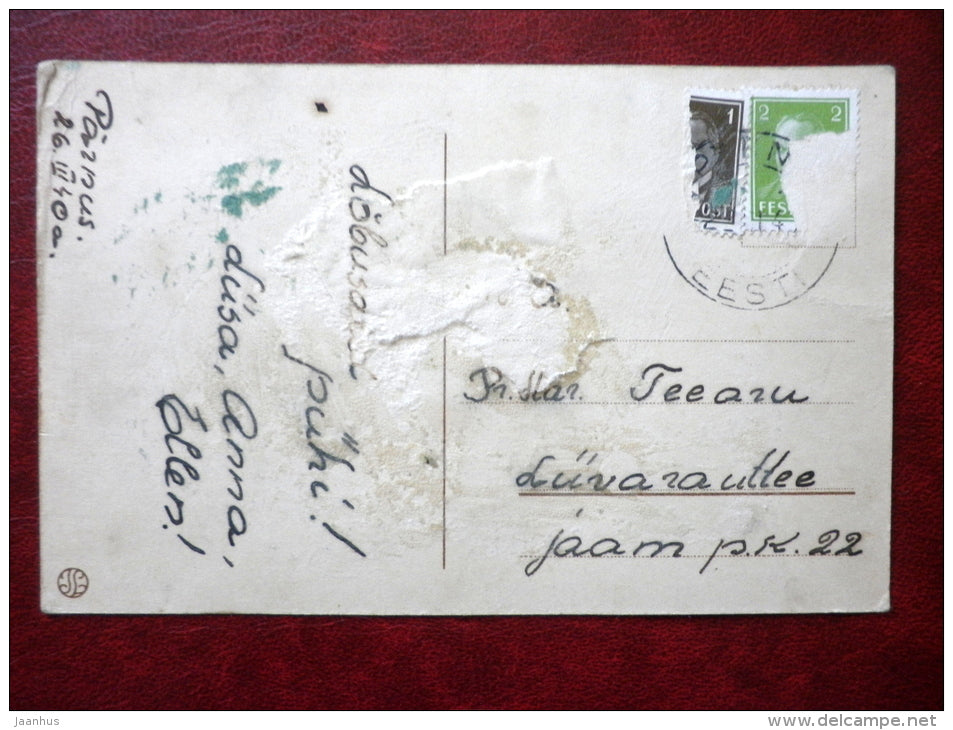 Pärnus.
26. III 40 a.
Lõbusaid
pühi!
Liisa, Anna,
Ellen!
1
OST
2 2
EES
EESTI
Pr. Mar. Teearu
Liivarauttee
jaam p.k. 22
Jaanhus
www.delcampe.net